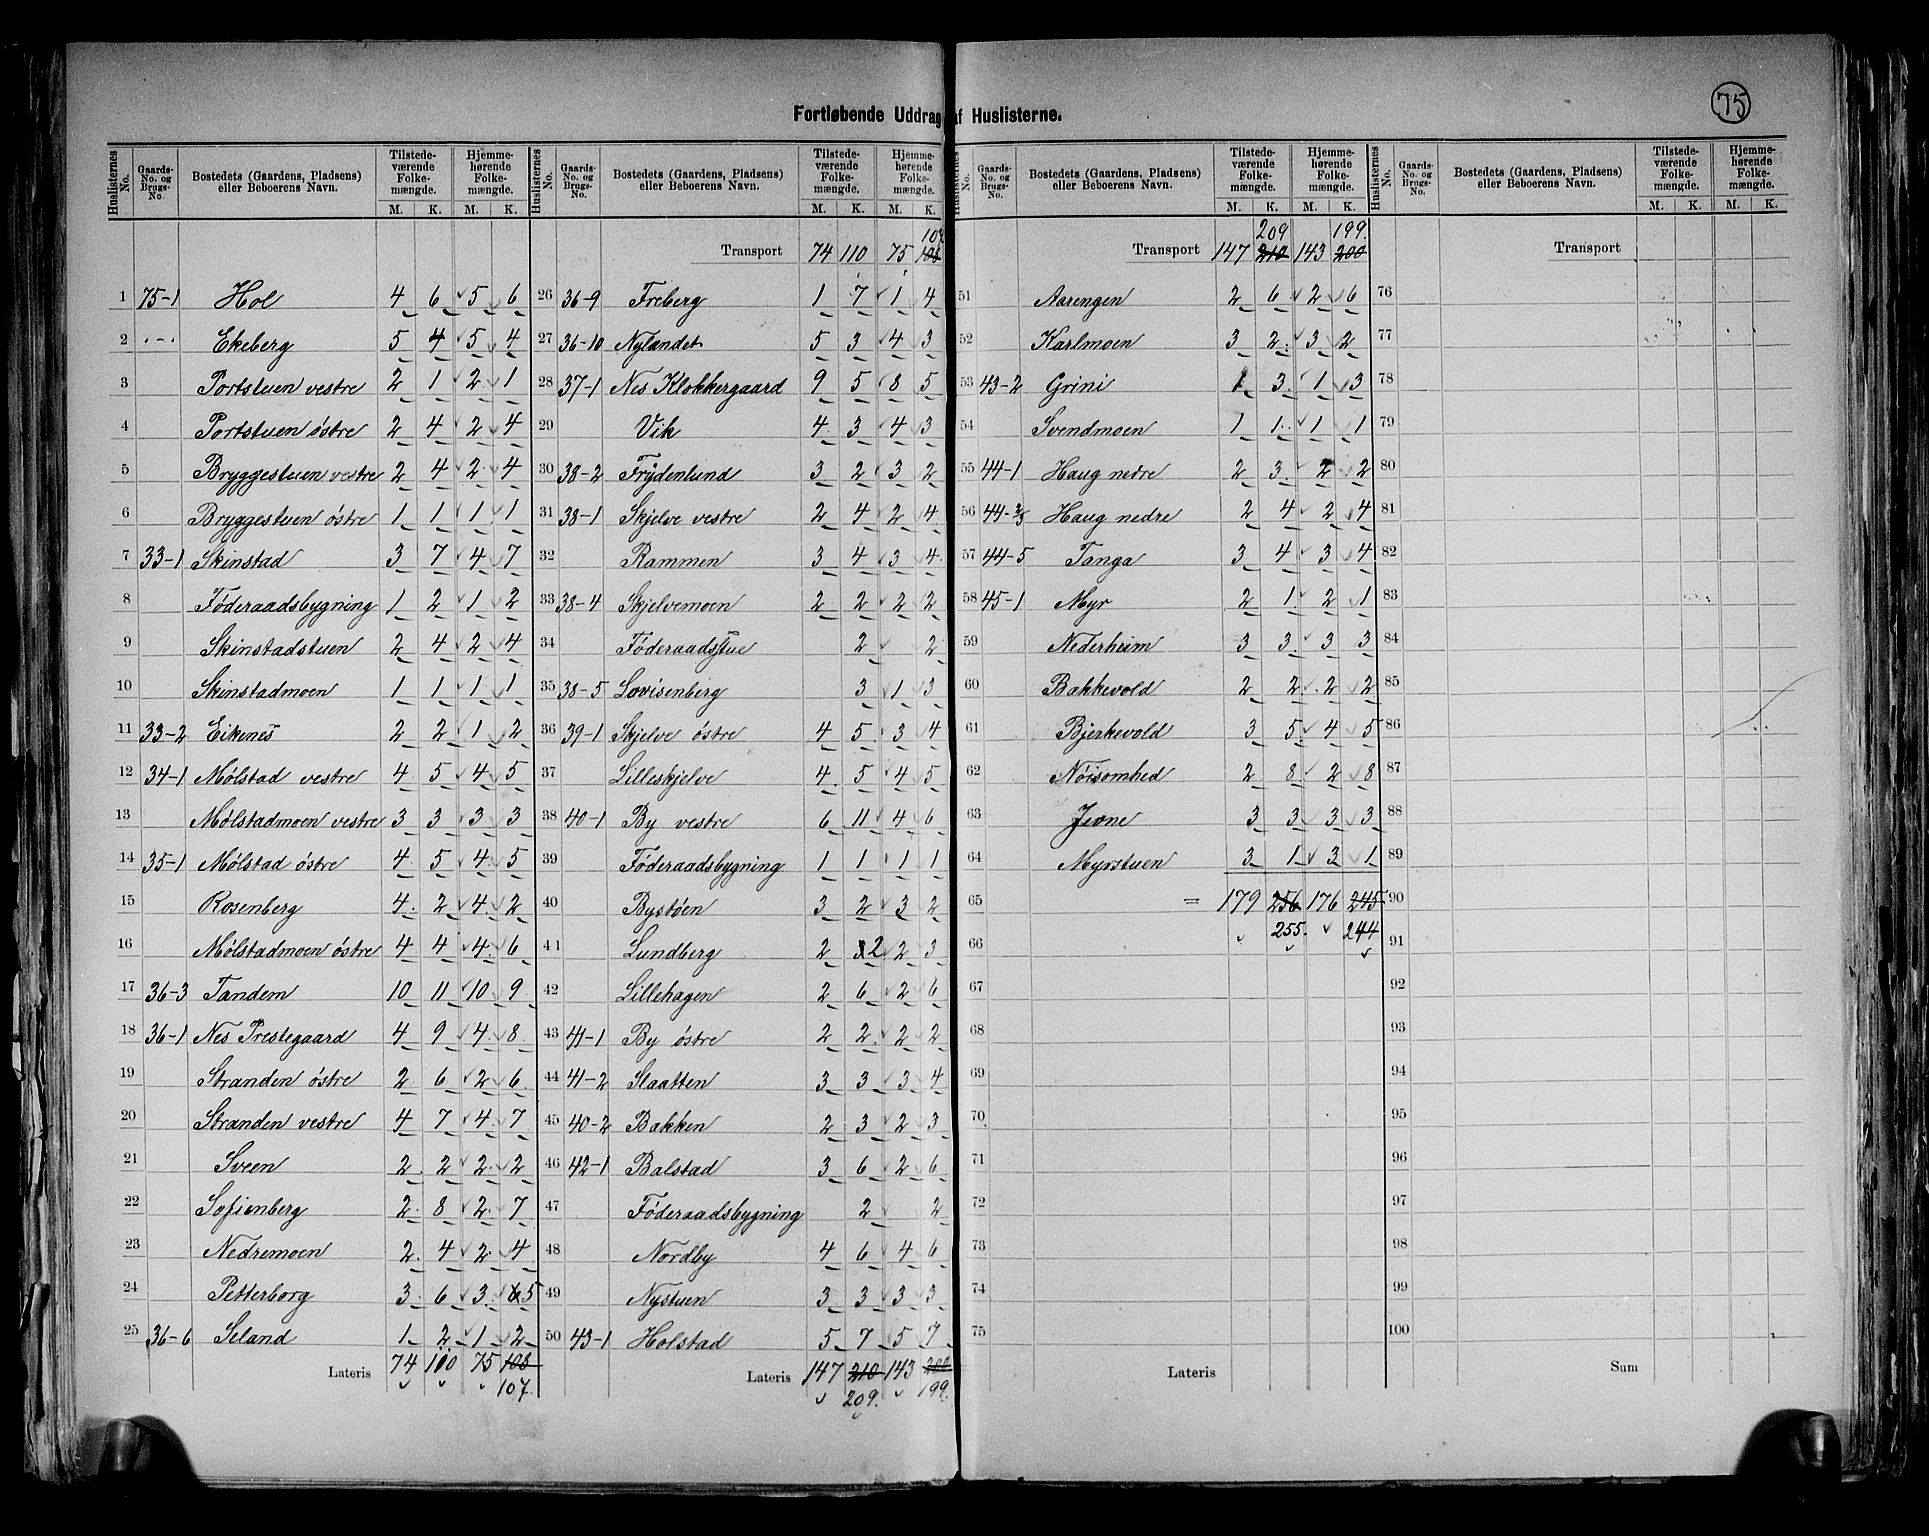 75
Fortløbende Uddrag af Huslisterne.
Huslisternes No. Gaards- No. og Brugs- No. Bostedets (Gaardens, Pladsens) eller Beboerens Navn. Tilstede- værende Folke- mængde. Hjemme- hørende Folke- mængde.
M. K. M. K.
1 75-1 Hol 4 6 5 6
2 "-" Ekeberg 5 4 5 4
3 Portstuen vestre 2 1 2 1
4 Portstuen østre 2 4 2 4
5 Bryggestuen vestre 2 4 2 4
6 Bryggestuen østre 1 1 1 1
7 33-1 Skinstad 3 7 4 7
8 Føderaadsbygning 1 2 1 2
9 Skinstadstuen 2 4 2 4
10 Skinstadmoen 1 1 1 1
11 33-2 Eikenes 2 2 1 2
12 34-1 Mølstad vestre 4 5 4 5
13 Mølstadmoen vestre 3 3 3 3
14 35-1 Mølstad østre 4 5 4 5
15 Rosenberg 4 2 4 2
16 Mølstadmoen østre 4 4 4 6
17 36-3 Tandem 10 11 10 9
18 36-1 Nes Prestegaard 4 9 4 8
19 Stranden østre 2 6 2 6
20 Stranden vestre 4 7 4 7
21 Sveen 2 2 2 2
22 Sofienberg 2 8 2 7
23 Nedremoen 2 4 2 4
24 Petterborg 3 6 3 6 5
25 36-6 Seland 1 2 1 2
Lateris 74 110 75 108
107.
Huslisternes No. Gaards- No. og Brugs- No. Bostedets (Gaardens, Pladsens) eller Beboerens Navn. Tilstede- værende Folke- mængde. Hjemme- hørende Folke- mængde.
M. K. M. K.
107
Transport 74 110 75 108
26 36-9 Freberg 1 7 1 4
27 36-10 Nylandet 5 3 4 3
28 37-1 Nes Klokkergaard 9 5 8 5
29 Vik 4 3 4 3
30 38-2 Frydenlund 3 2 3 2
31 38-1 Skjelve vestre 2 4 2 4
32 Rammen 3 4 3 4
33 38-4 Skjelvemoen 2 2 2 2
34 Føderaadstue 2 2
35 38-5 Lovisenberg 3 1 3
36 39-1 Skjelve østre 4 5 3 4
37 Lilleskjelve 4 5 4 5
38 40-1 By vestre 6 11 4 6
39 Føderaadsbygning 1 1 1 1
40 Bystøen 3 2 3 2
41 Lundberg 2 3 2 2 3
42 Lillehagen 2 6 2 6
43 41-1 By østre 2 2 2 2
44 41-2 Slaatten 3 3 3 4
45 40-2 Bakken 2 3 2 3
46 42-1 Balstad 3 6 2 6
47 Føderaadsbygning 2 2
48 Nordby 4 6 4 6
49 Nystuen 3 3 3 3
50 43-1 Holstad 5 7 5 7
Lateris 147 210 143 200
209. 199.
No. Gaards- No. og Brugs- No. Bostedets (Gaardens, Pladsens) eller Beboerens Navn. Tilstede- værende Folke- mængde. Hjemme- hørende Folke- mængde.
M. K. M. K.
209 199.
Transport 147 210 143 200
51 Aarengen 2 6 2 6
52 Karlmoen 3 2 3 2
53 43-2 Grini 1 3 1 3
54 Svendmoen 1 1 1 1
55 44-1 Haug nedre 2 3 2 2
56 44-2/3 Haug nedre 2 4 2 4
57 44-5 Tanga 3 4 3 4
58 45-1 Myr 2 1 2 1
59 Nederheim 3 3 3 3
60 Bakkevold 2 2 2 2
61 Bjerkevold 3 5 4 5
62 Nøisomhed 2 8 2 8
63 Jevne 3 3 3 3
64 Myrstuen 3 1 3 1
65 = 179 256 176 245
66 255. 244
67
68
69
70
71
72
73
74
75
Lateris
Huslisternes No. Gaards- No. og Brugs- No. Bostedets (Gaardens, Pladsens) eller Beboerens Navn. Tilstede- værende Folke- mængde. Hjemme- hørende Folke- mængde.
M. K. M. K.
Transport
76
77
78
79
80
81
82
83
84
85
86
87
88
89
90
91
92
93
94
95
96
97
98
99
100
Sum